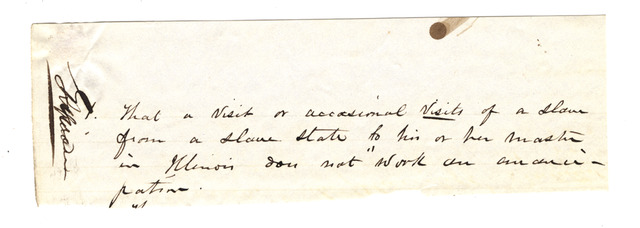 That a visit or occasional visits of a slave
from a slave state to his or her master
in Illinois does not "work an emanci-
pation.